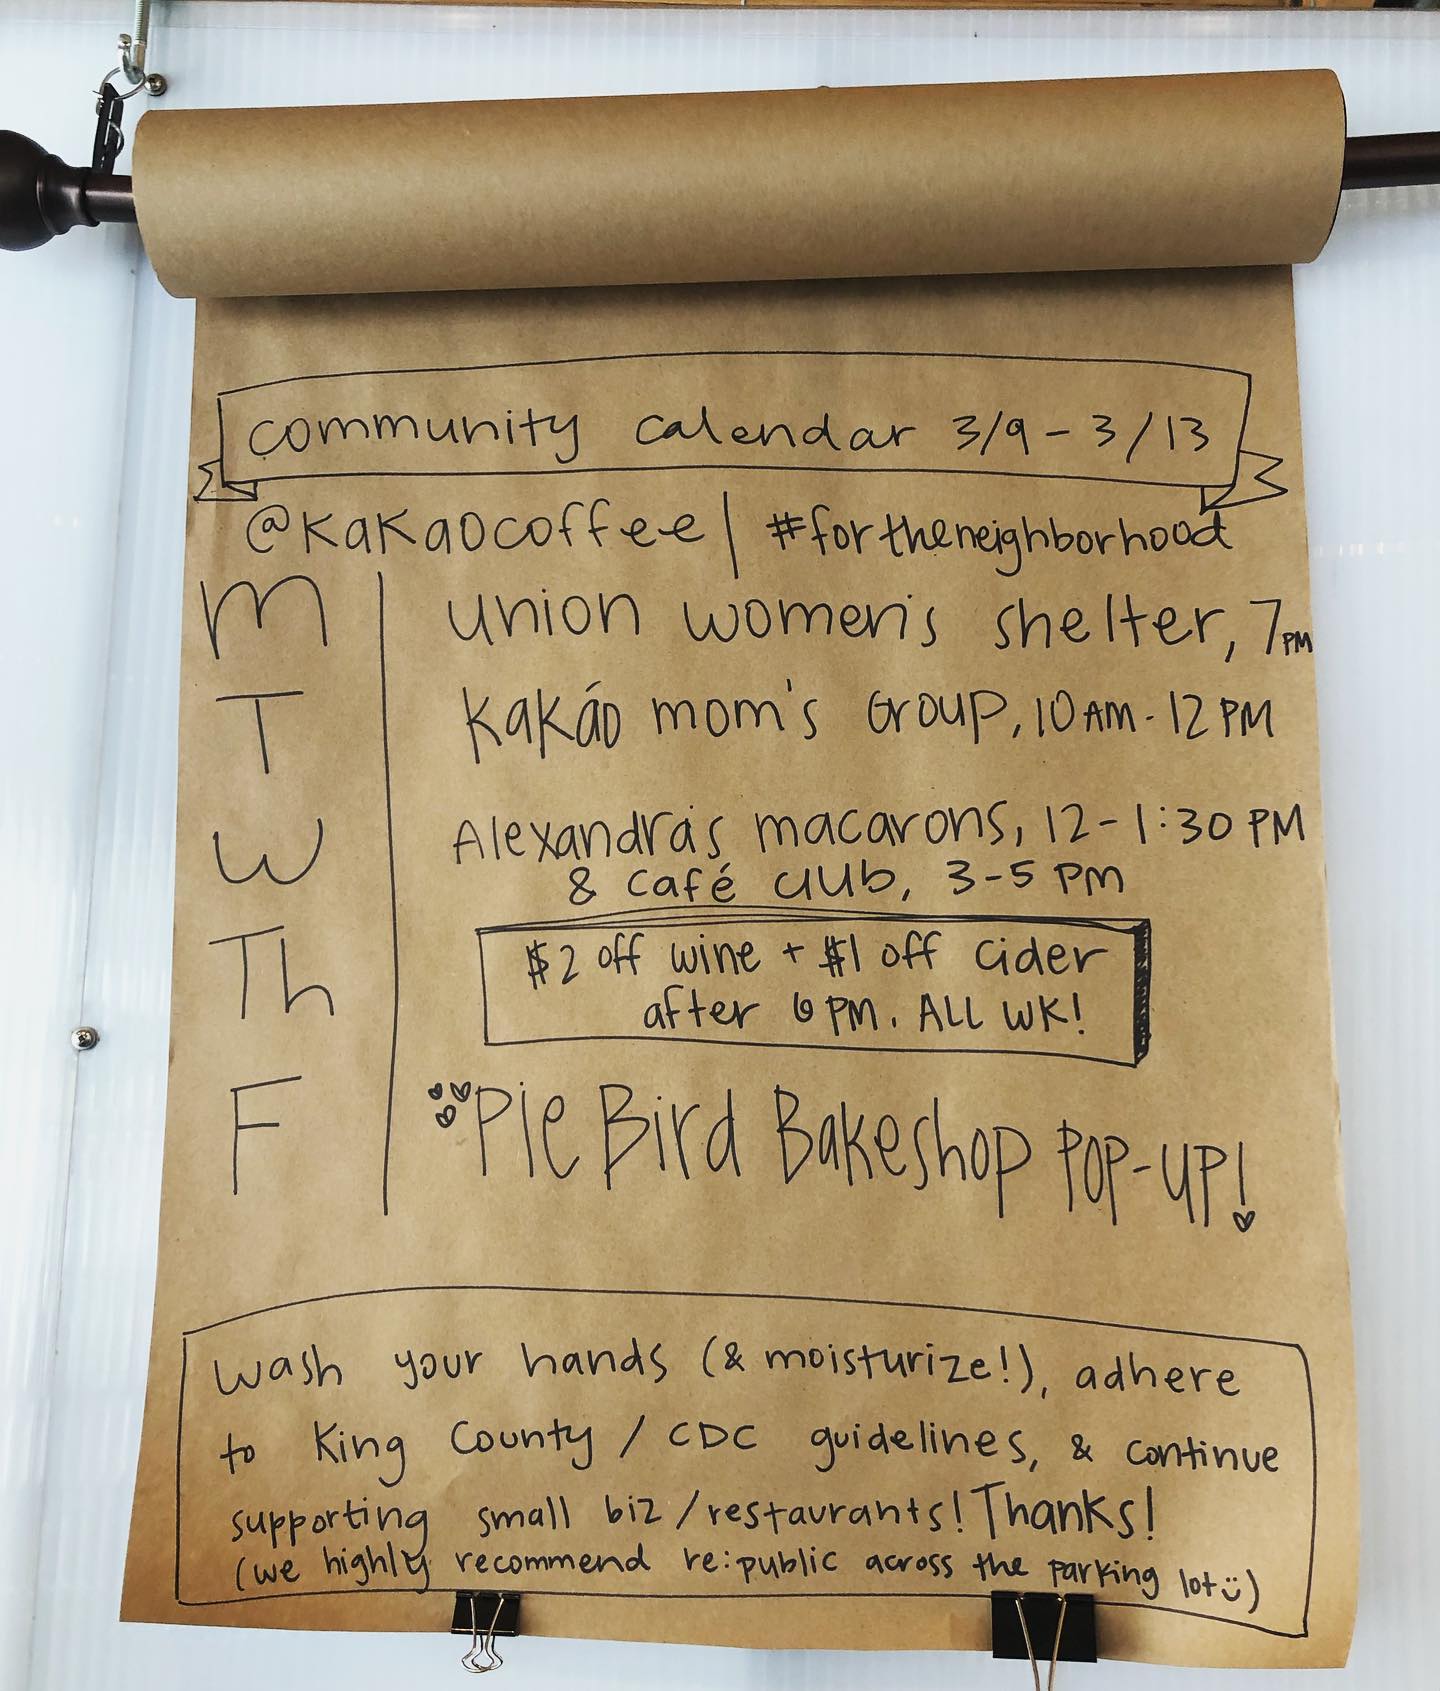 community calendar 3/9 - 3/13
@kakaocoffee | #fortheneighborhood
M union women's shelter, 7PM
T Kakáo mom's Group, 10AM - 12 PM
W Alexandra's macarons, 12 - 1:30 PM
& café club, 3-5 PM
Th $2 off wine + $1 off cider
after 6 PM. ALL WK!
F Pie Bird Bakeshop POP-UP!
wash your hands (& moisturize!), adhere
to King County / CDC guidelines, & continue
supporting small biz/restaurants! Thanks!
(we highly recommend re:public across the parking lot ü)